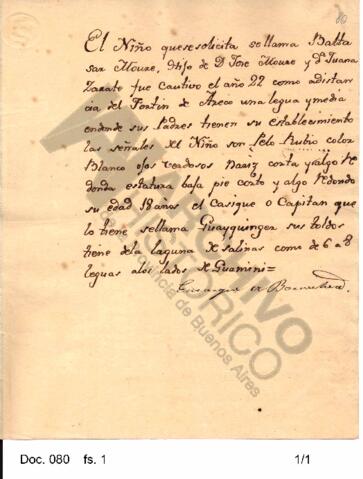 80
El Niño que se solicita se llama Balta
sar Moure, Hijo de D. Jose Moure y Dª Juana
Zarate fue Cautivo el año 22 como a distan
cia del Fortin de Areco una legua y media
en donde sus Padres tienen su establecimiento
las señales del Niño son Pelo Rubio color
Blanco ojos verdosos Nariz corta y algo Re
donda estatura baja pie corto y algo Redondo
su edad 18 años el Casique o Capitan que
lo tiene se llama Guayquinger sus toldos
tiene de la laguna de Salinas como de 6 a 8
leguas a los lados de Guamini=
ARCHIVO
HISTORICO
Provincia de Buenos Aires
Doc. 080 fs. 1 1/1